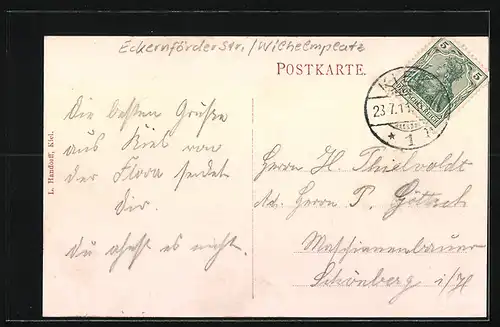 Eckernförderstr./Wilhelmplatz
POSTKARTE.
5 5
KIEL
23.7.11
* 1 *
L. Handorff, Kiel.
Die besten Grüße
aus Kiel von
der Flora sendet
Dir.
Du ahnst es nicht.
Herrn H. Thielvoldt
Ad. Herrn P. Göttsch
Maschinenbauer
Schönberg i/H